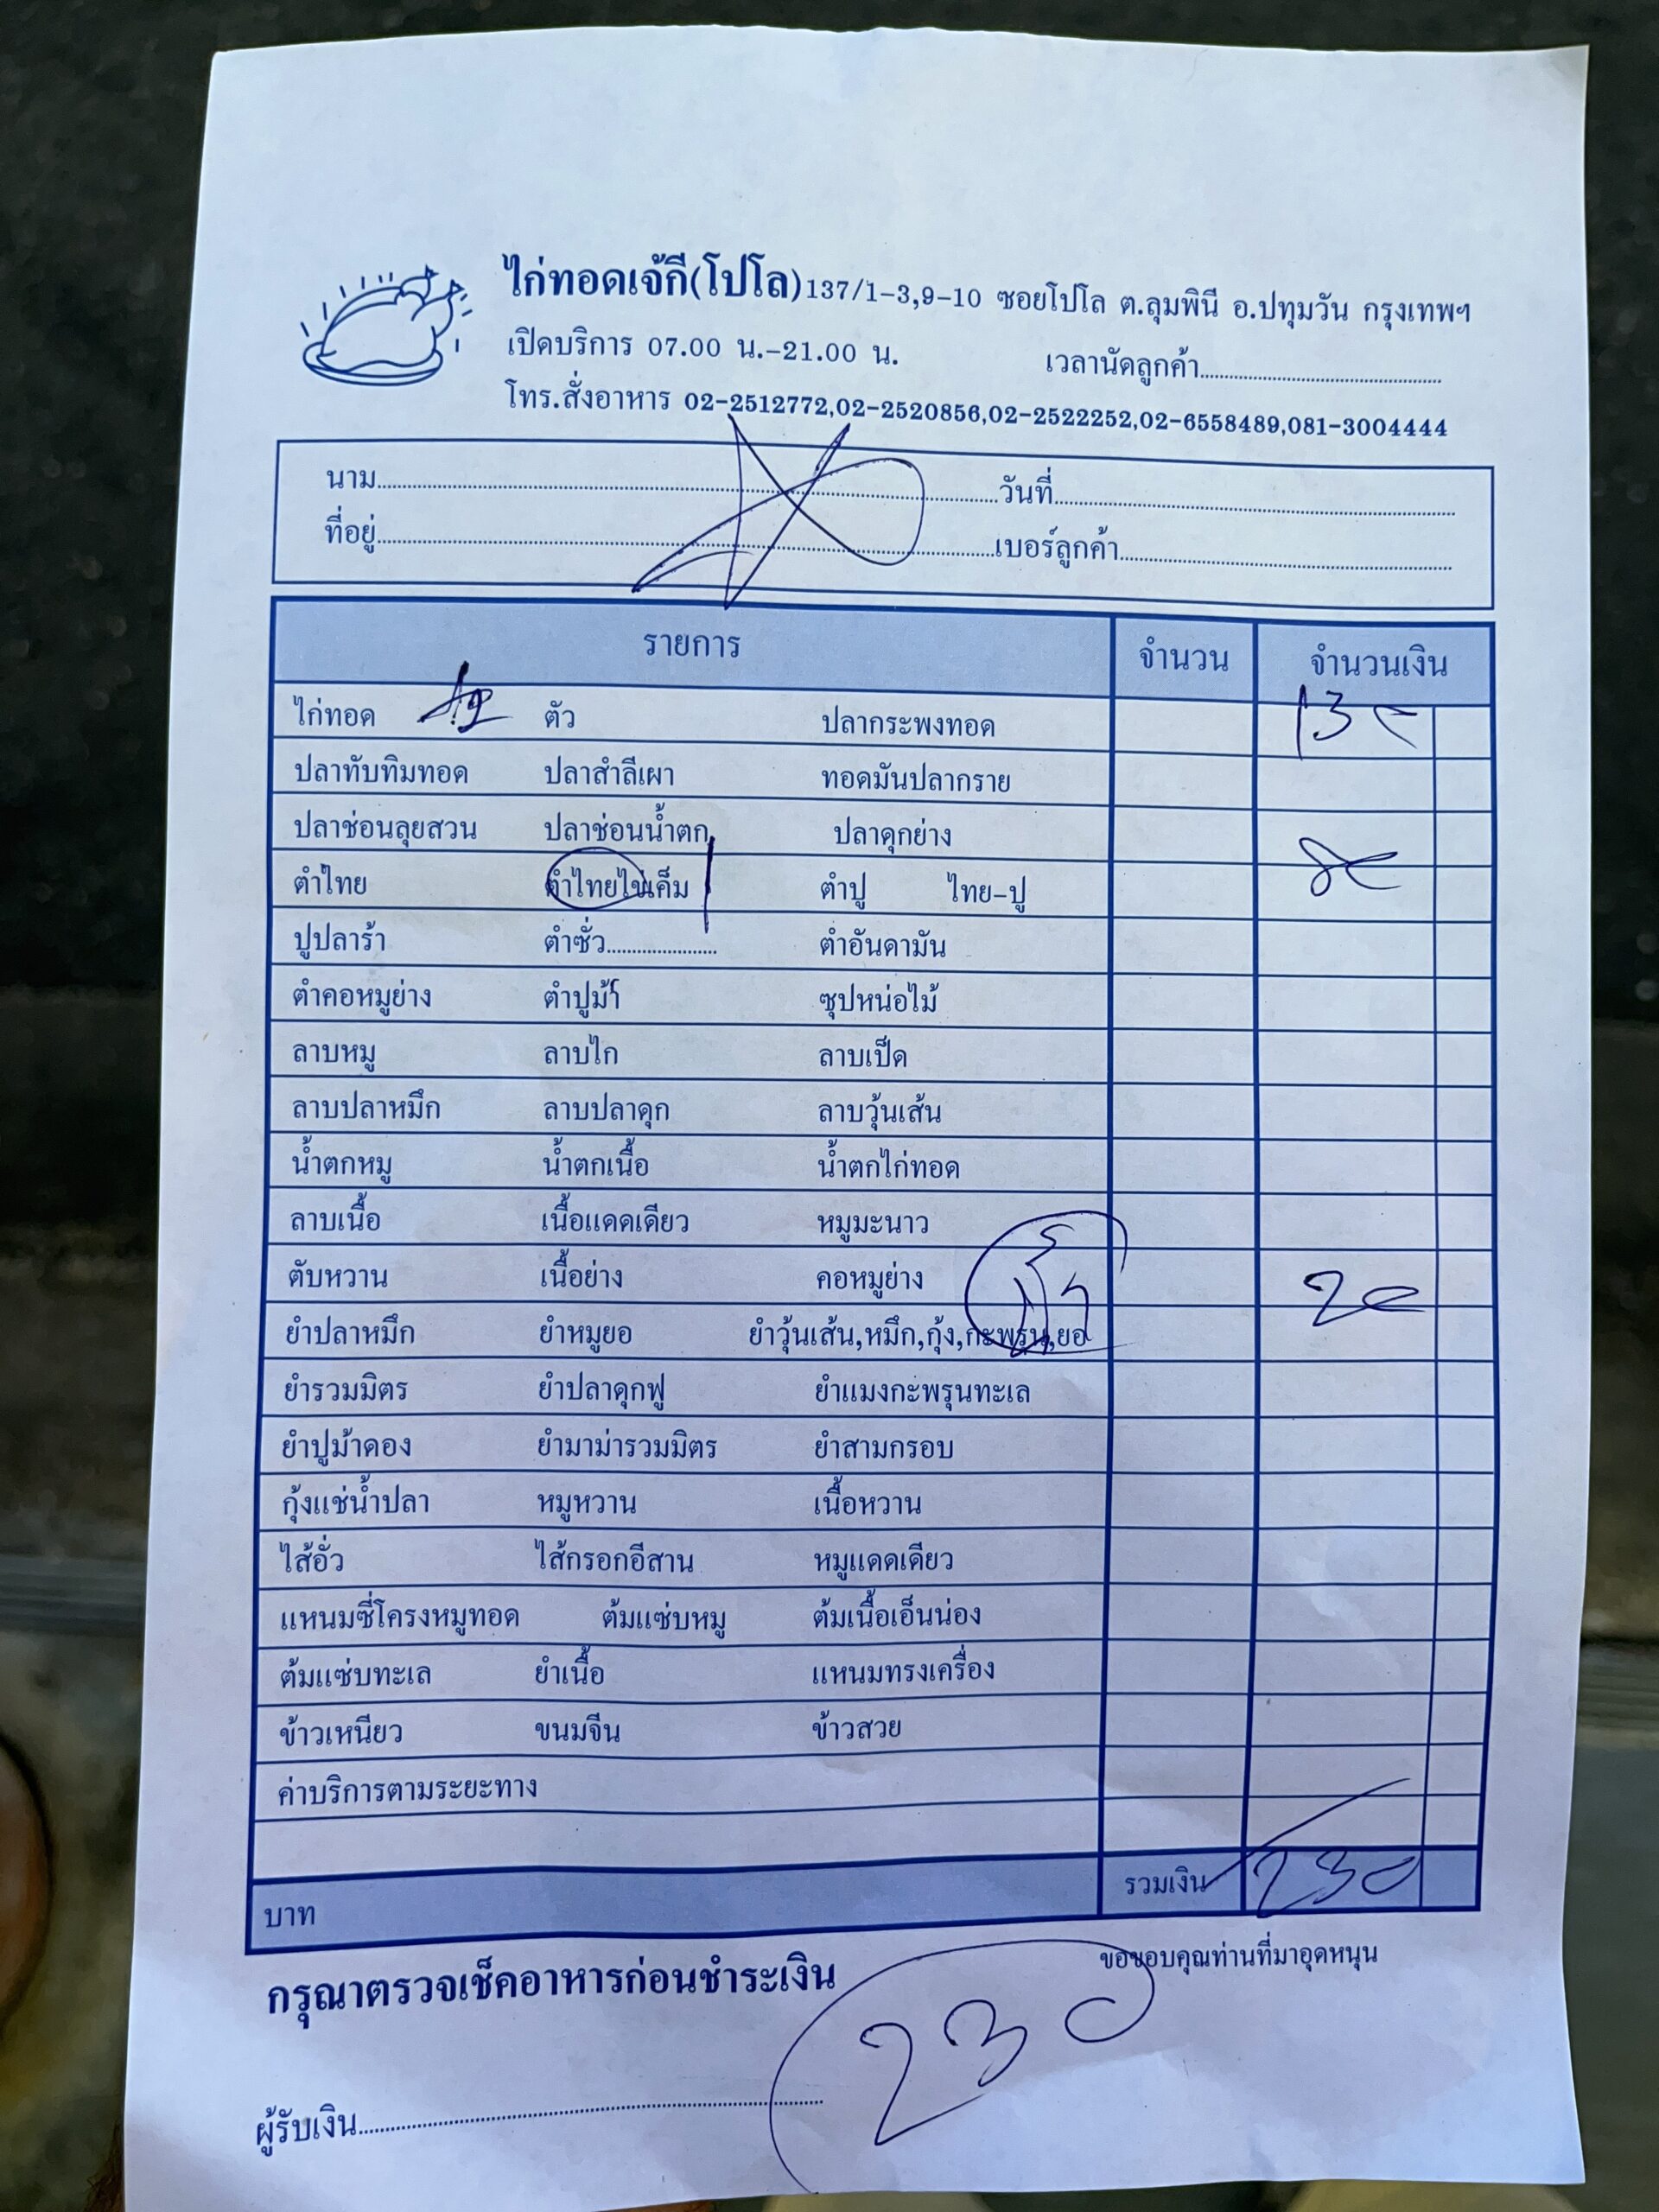 ไก่ทอดเจ๊กี(โปโล)137/1-3,9-10 ซอยโปโล ต.ลุมพินี อ.ปทุมวัน กรุงเทพฯ
เปิดบริการ 07.00 น.-21.00 น. เวลานัดลูกค้า
โทร.สั่งอาหาร 02-2512772,02-2520856,02-2522252,02-6558489,081-3004444
นาม วันที่
ที่อยู่ เบอร์ลูกค้า
รายการ จำนวน จำนวนเงิน
ไก่ทอด ตัว ปลากระพงทอด 130
ปลาทับทิมทอด ปลาสำลีเผา ทอดมันปลากราย
ปลาช่อนลุยสวน ปลาช่อนน้ำตก ปลาดุกย่าง
ตำไทย ตำไทยไข่เค็ม 1 ตำปู ไทย-ปู 80
ปูปลาร้า ตำซั่ว ตำอันดามัน
ตำคอหมูย่าง ตำปูม้า ซุปหน่อไม้
ลาบหมู ลาบไก่ ลาบเป็ด
ลาบปลาหมึก ลาบปลาดุก ลาบวุ้นเส้น
น้ำตกหมู น้ำตกเนื้อ น้ำตกไก่ทอด
ลาบเนื้อ เนื้อแดดเดียว หมูมะนาว
ตับหวาน เนื้อย่าง คอหมูย่าง 20
ยำปลาหมึก ยำหมูยอ ยำวุ้นเส้น,หมึก,กุ้ง,กะพรุน,ยอ
ยำรวมมิตร ยำปลาดุกฟู ยำแมงกะพรุนทะเล
ยำปูม้าดอง ยำมาม่ารวมมิตร ยำสามกรอบ
กุ้งแช่น้ำปลา หมูหวาน เนื้อหวาน
ไส้อั่ว ไส้กรอกอีสาน หมูแดดเดียว
แหนมซี่โครงหมูทอด ต้มแซ่บหมู ต้มเนื้อเอ็นน่อง
ต้มแซ่บทะเล ยำเนื้อ แหนมทรงเครื่อง
ข้าวเหนียว ขนมจีน ข้าวสวย
ค่าบริการตามระยะทาง
บาท รวมเงิน 230
กรุณาตรวจเช็คอาหารก่อนชำระเงิน ขอขอบคุณท่านที่มาอุดหนุน
230
ผู้รับเงิน